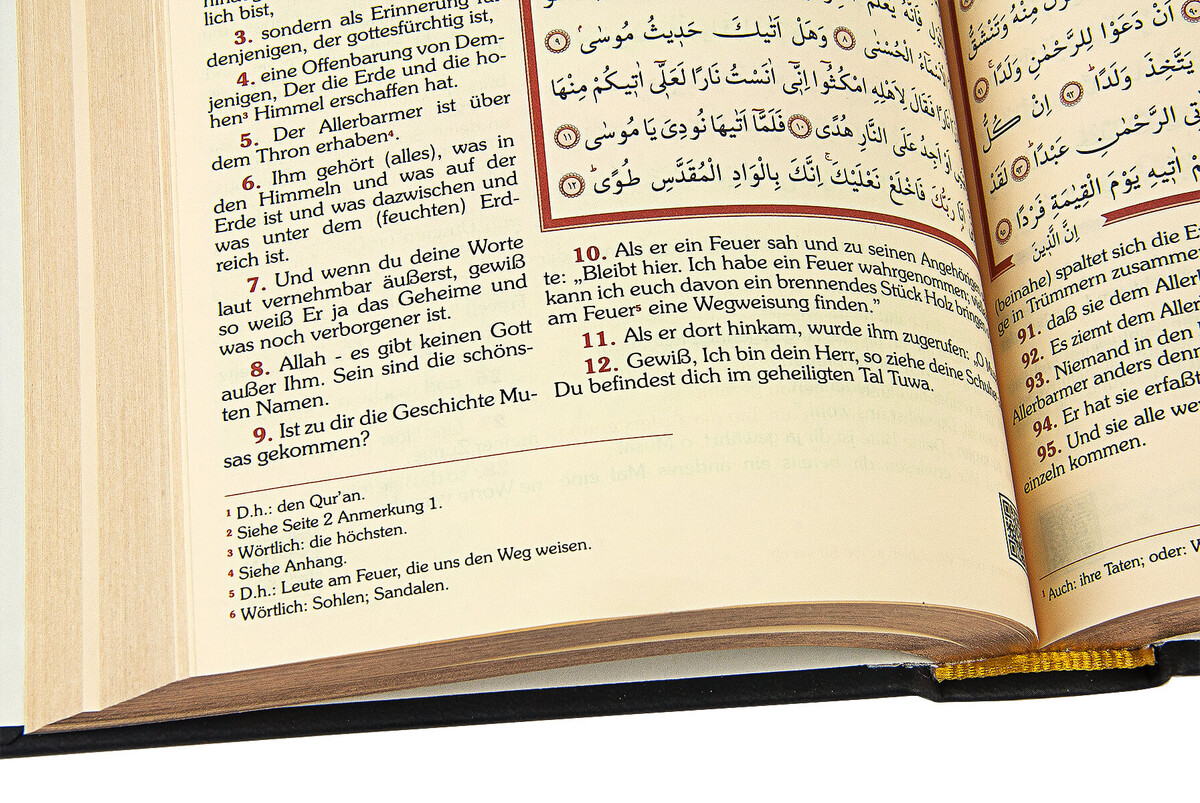 lich bist,
3. sondern als Erinnerung für
denjenigen, der gottesfürchtig ist,
4. eine Offenbarung von Dem-
jenigen, Der die Erde und die ho-
hen³ Himmel erschaffen hat.
5. Der Allerbarmer ist über
dem Thron erhaben⁴.
6. Ihm gehört (alles), was in
den Himmeln und was auf der
Erde ist und was dazwischen und
was unter dem (feuchten) Erd-
reich ist.
7. Und wenn du deine Worte
laut vernehmbar äußerst, gewiß
so weiß Er ja das Geheime und
was noch verborgener ist.
8. Allah - es gibt keinen Gott
außer Ihm. Sein sind die schöns-
ten Namen.
9. Ist zu dir die Geschichte Mu-
sas gekommen?
الْحُسْنٰى ﴿٨﴾ وَهَلْ اَتٰيكَ حَد۪يثُ مُوسٰىۢ ﴿٩﴾
نَارًا فَقَالَ لِاَهْلِهِ امْكُثُٓوا اِنّ۪ٓي اٰنَسْتُ نَارًا لَعَلّ۪ٓي اٰت۪يكُمْ مِنْهَا
اَوْ اَجِدُ عَلَى النَّارِ هُدًى ﴿١٠﴾ فَلَمَّٓا اَتٰيهَا نُودِيَ يَا مُوسٰى ﴿١١﴾
رَبُّكَ فَاخْلَعْ نَعْلَيْكَۚ اِنَّكَ بِالْوَادِ الْمُقَدَّسِ طُوًىۜ ﴿١٢﴾
10. Als er ein Feuer sah und zu seinen Angehörigen
te: „Bleibt hier. Ich habe ein Feuer wahrgenommen;
kann ich euch davon ein brennendes Stück Holz bringen
am Feuer⁵ eine Wegweisung finden.”
11. Als er dort hinkam, wurde ihm zugerufen: „O
12. Gewiß, Ich bin dein Herr, so ziehe deine Schuhe
Du befindest dich im geheiligten Tal Tuwa.
1 D.h.: den Qur’an.
2 Siehe Seite 2 Anmerkung 1.
3 Wörtlich: die höchsten.
4 Siehe Anhang.
5 D.h.: Leute am Feuer, die uns den Weg weisen.
6 Wörtlich: Sohlen; Sandalen.
مِنْهُ وَتَنْشَقُّ
اَنْ دَعَوْا لِلرَّحْمٰنِ وَلَدًاۚ ﴿٩١﴾
يَتَّخِذَ وَلَدًاۜ ﴿٩٢﴾ اِنْ كُلُّ
الرَّحْمٰنِ عَبْدًاۜ ﴿٩٣﴾ لَقَدْ
اٰت۪يهِ يَوْمَ الْقِيٰمَةِ فَرْدًا ﴿٩٥﴾
اِنَّ الَّذ۪ينَ
(beinahe) spaltet sich die
ge in Trümmern zusammen
91. daß sie dem
92. Es ziemt dem
93. Niemand in den
Allerbarmer anders denn
94. Er hat sie erfaßt
95. Und sie alle
einzeln kommen.
1 Auch: ihre Taten; oder: